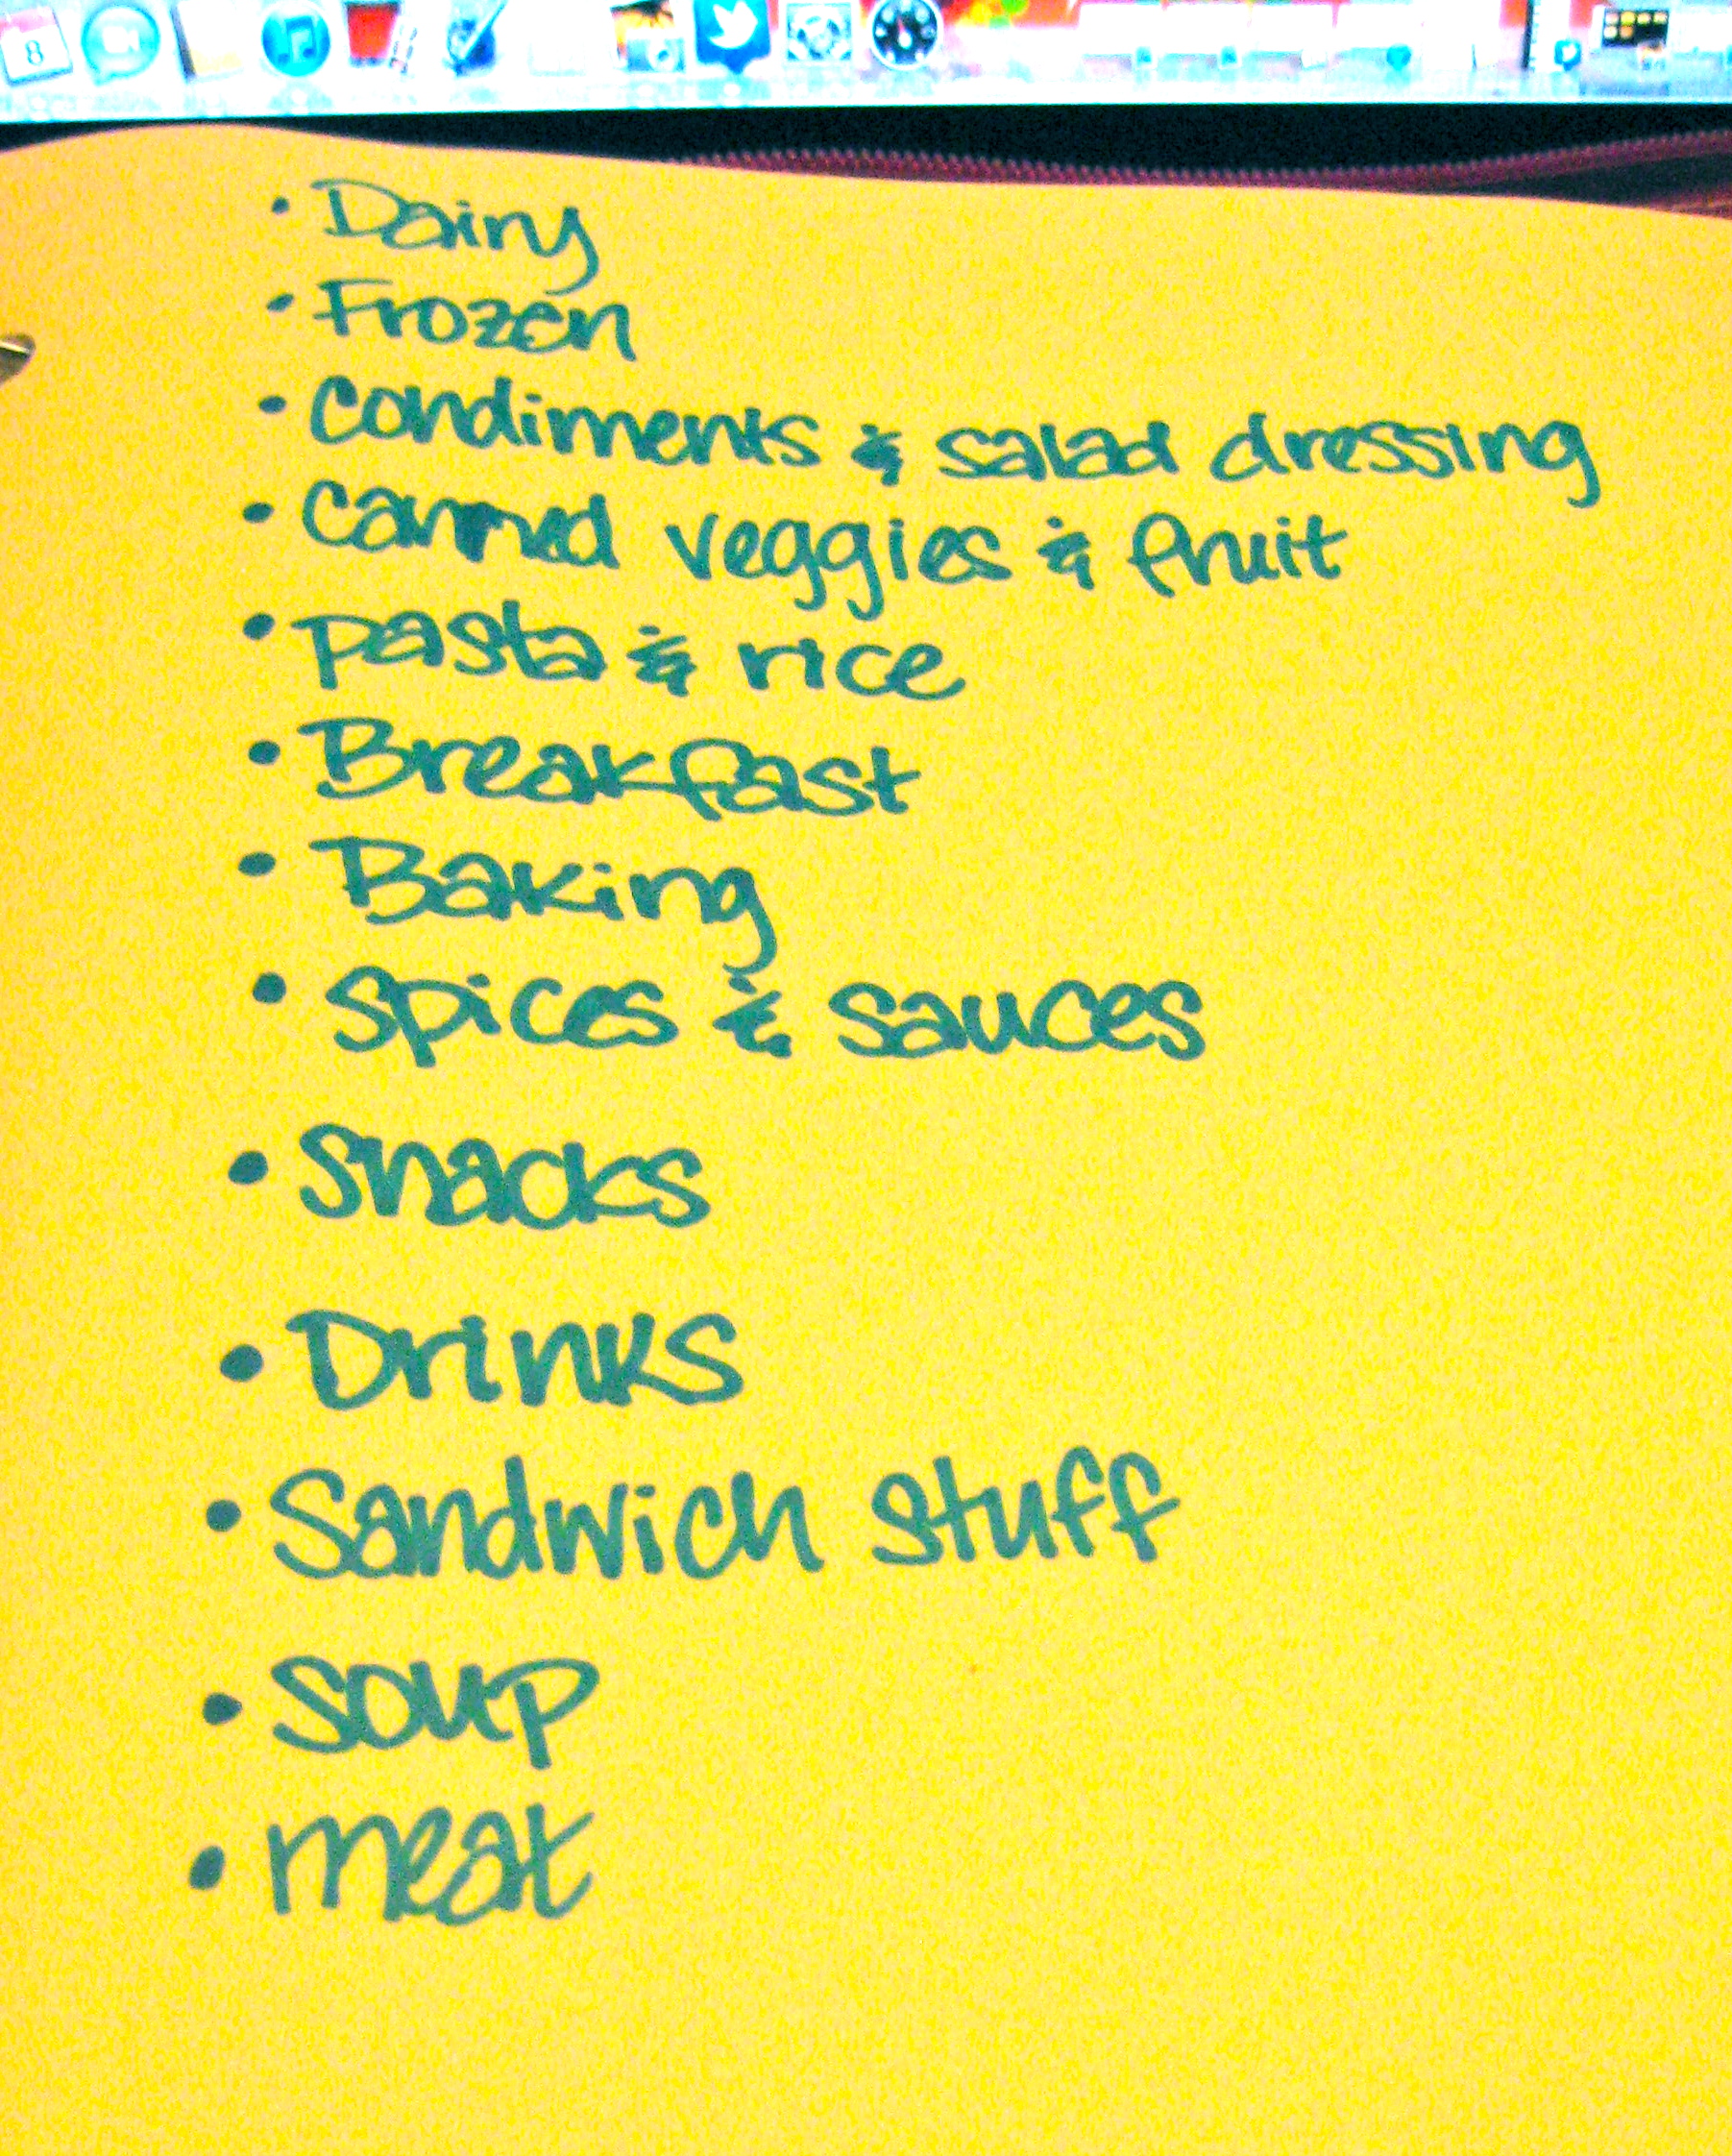 8
• Dairy
• Frozen
• Condiments & salad dressing
• Canned veggies & fruit
• pasta & rice
• Breakfast
• Baking
• Spices & sauces
• Snacks
• Drinks
• Sandwich stuff
• Soup
• meat